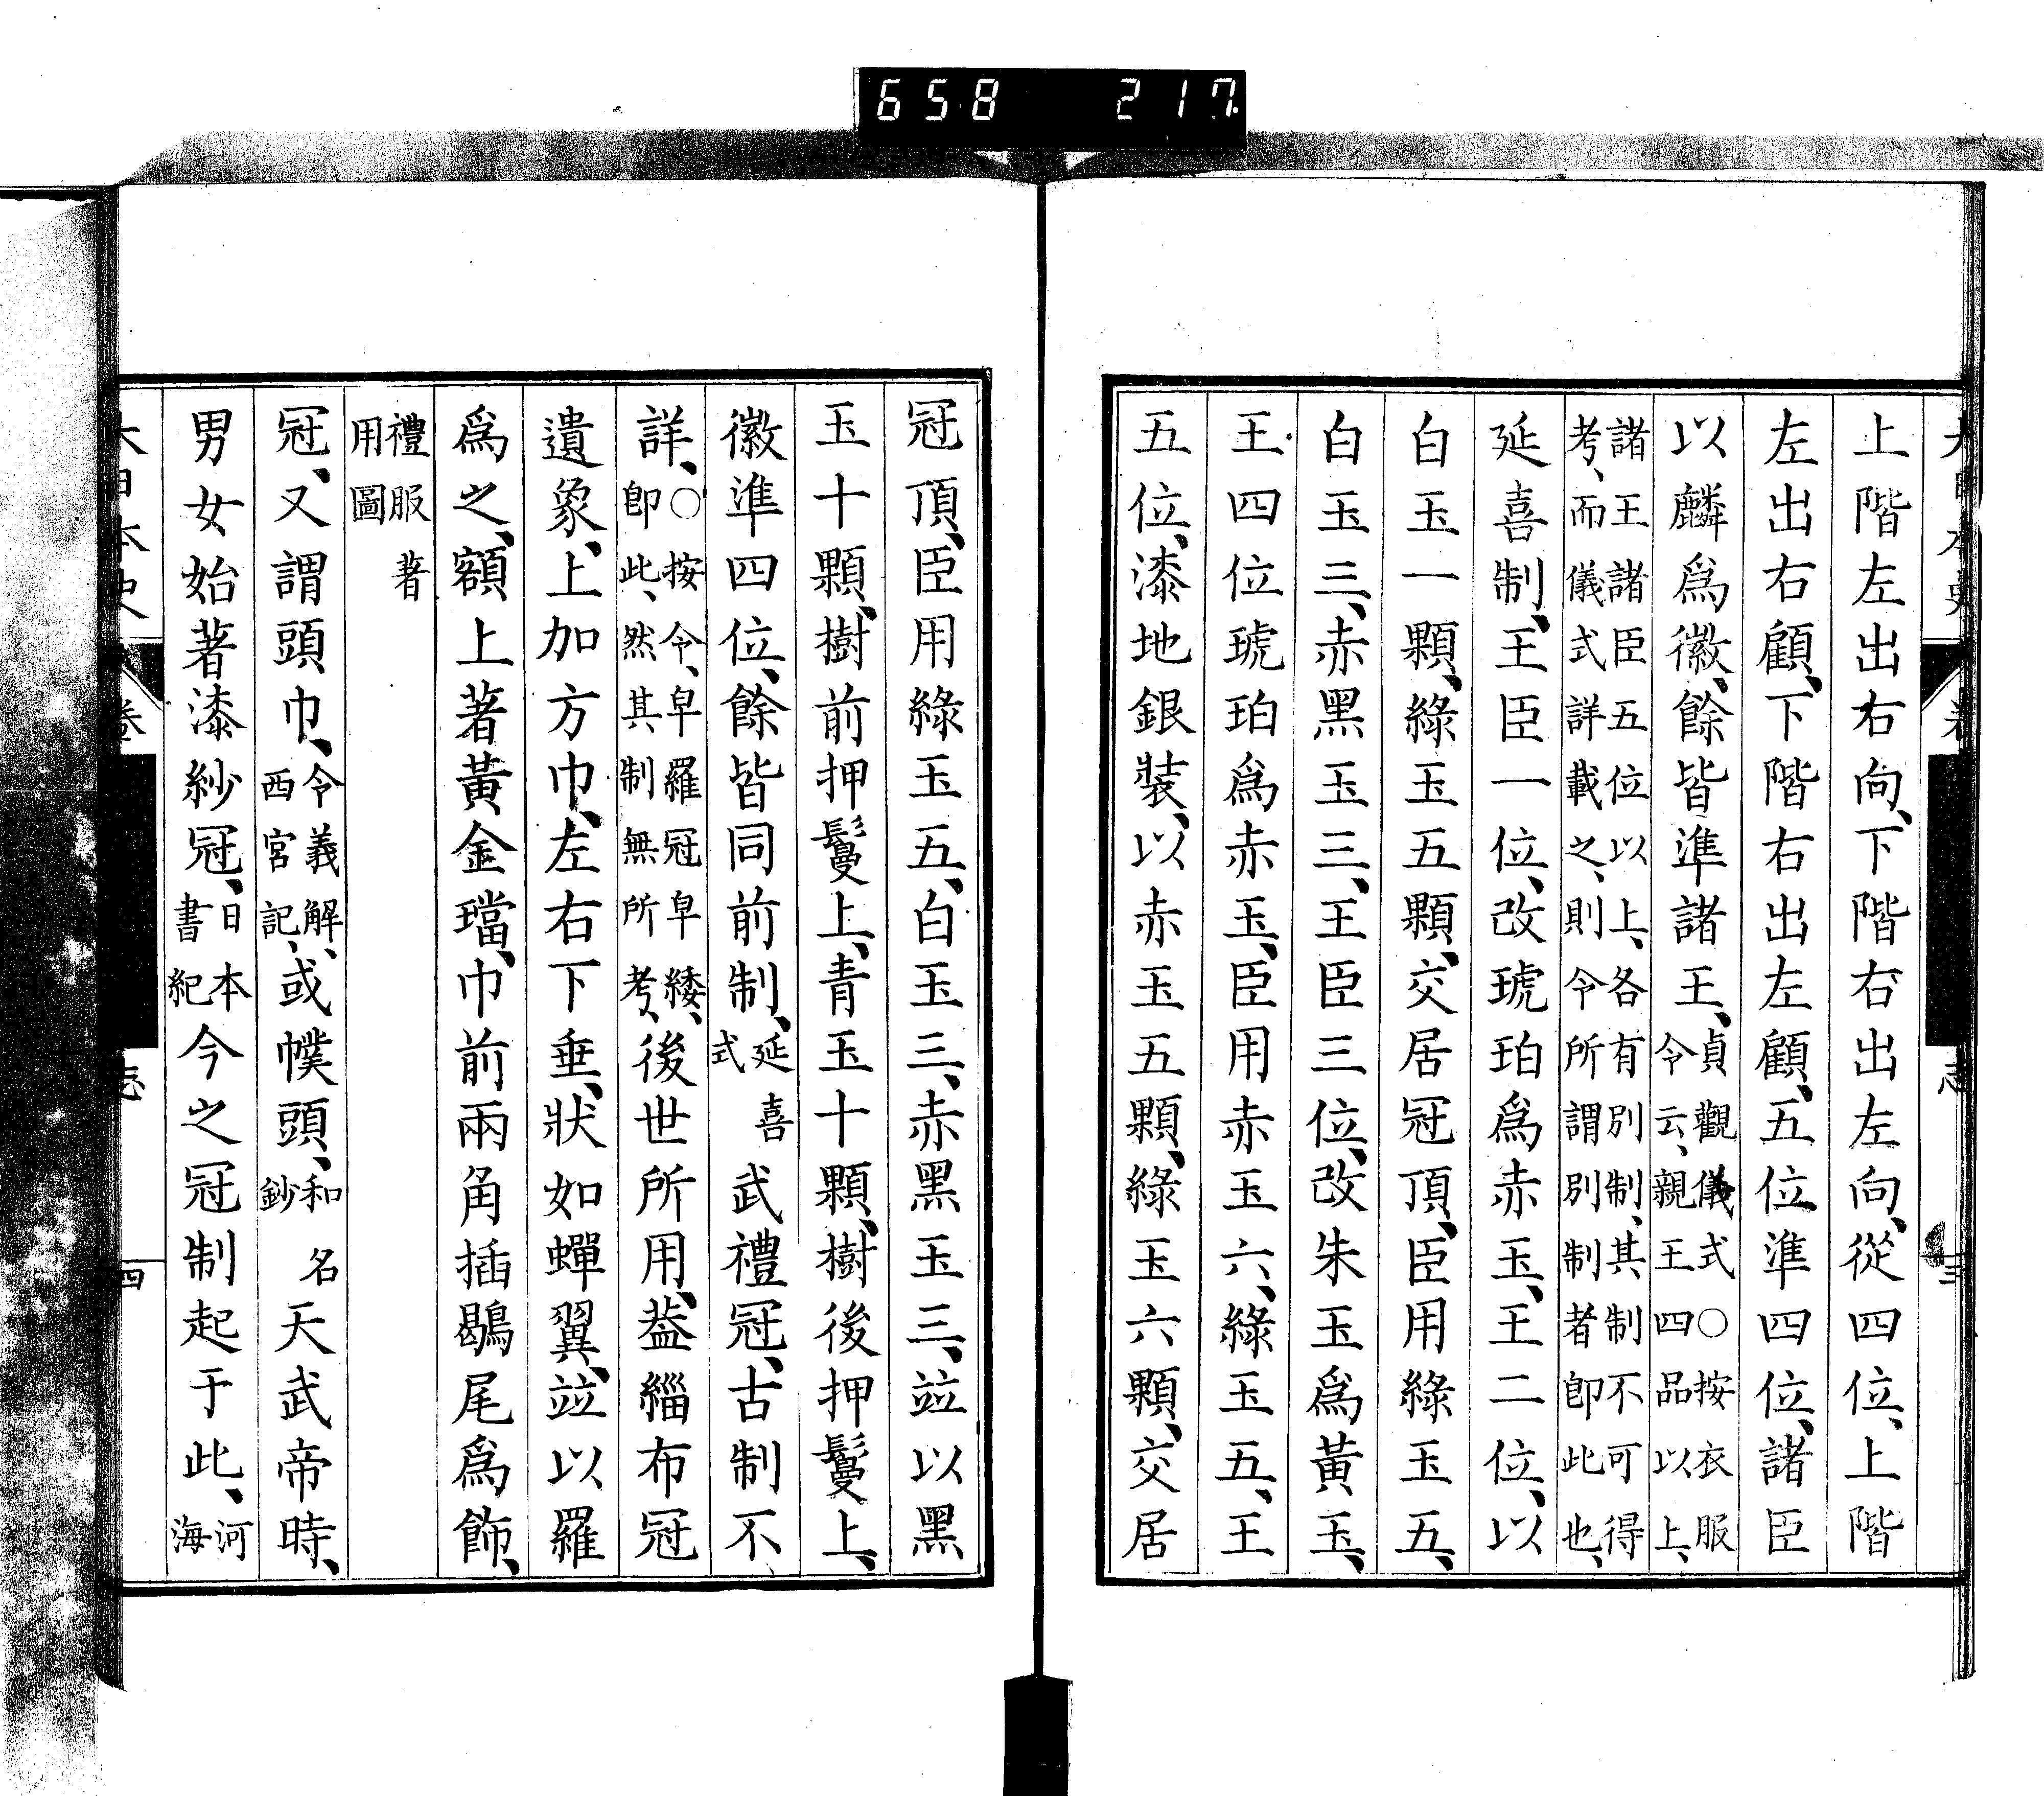 658 217
上階左出右向、下階右出左向、從四位、上階
左出右顧、下階右出左顧、五位準四位、諸臣
以麟爲徽、餘皆準諸王、貞觀儀式○按衣服
令云、親王四品以上、
諸王諸臣五位以上、各有別制、其制不可得
考、而儀式詳載之、則令所謂別制者卽此也、
延喜制、王臣一位、改琥珀爲赤玉、王二位、以
白玉一顆、綠玉五顆、交居冠頂、臣用綠玉五、
白玉三、赤黑玉三、王臣三位、改朱玉爲黃玉、
王四位琥珀爲赤玉、臣用赤玉六、綠玉五、王
五位、漆地銀裝、以赤玉五顆、綠玉六顆、交居
冠頂、臣用綠玉五、白玉三、赤黑玉三、竝以黑
玉十顆、樹前押鬘上、靑玉十顆、樹後押鬘上、
徽準四位、餘皆同前制、延喜
式武禮冠、古制不
詳、○按令、皁羅冠皁緌、
卽此、然其制無所考、後世所用、葢緇布冠
遺象、上加方巾、左右下垂、狀如蟬翼、竝以羅
爲之、額上著黃金璫、巾前兩角插鶡尾爲飾、
禮服著
用圖
冠、又謂頭巾、令義解、
西宮記、或幞頭、和名
鈔天武帝時、
男女始著漆紗冠、日本
書紀今之冠制起于此、河
海
大日本史 卷 志 三
大日本史 卷 志 四